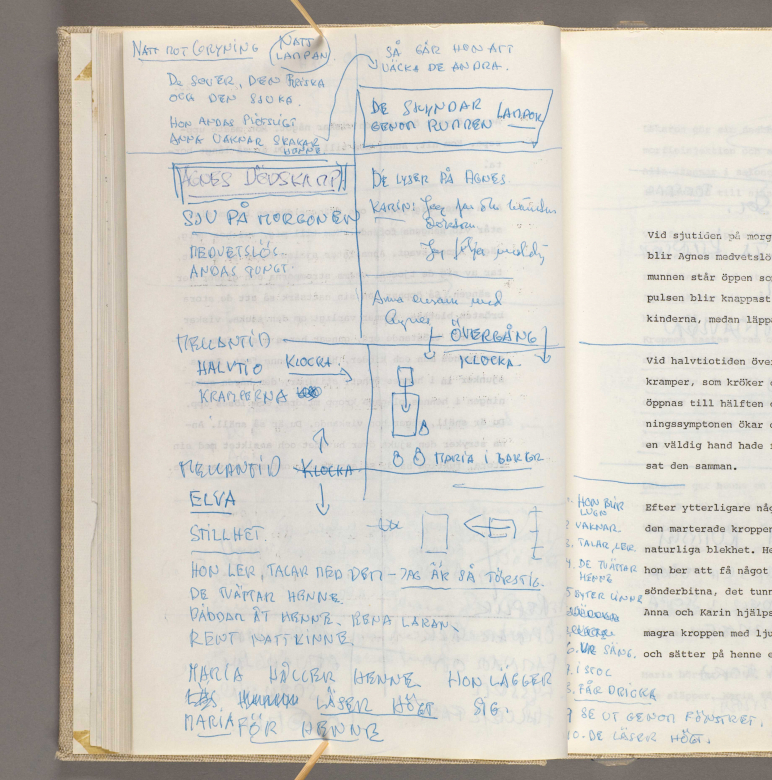 NATT MOT GRYNING
NATT
LAMPAN
DE SOVER, DEN FRISKA
OCH DEN SJUKA.
HON ANDAS PLÖTSLIGT
ANNA VAKNAR SKAKAR
HENNE
SÅ GÅR HON ATT
VÄCKA DE ANDRA.
DE SKYNDAR LAMPOR
GENOM RUMMEN
AGNES DÖDSKAMP
SJU PÅ MORGONEN
MEDVETSLÖS
ANDAS TUNGT.
DE LYSER PÅ AGNES
KARIN: Jag
Jag
Anna ensam med
Agnes
ÖVERGÅNG
KLOCKA.
MELLANTID
HALVTIO KLOCKA.
KRAMPERNA
MARIA I BAKGR
MELLANTID KLOCKA
ELVA
STILLHET.
HON LER, TALAR MED DEM - JAG ÄR SÅ TÖRSTIG.
DE TVÄTTAR HENNE.
BÄDDAR ÅT HENNE. RENA LAKAN.
RENT NATTLINNE.
MARIA HÅLLER HENNE HON LÄGGER
LÄSER HÖGT SIG.
MARIA FÖR HENNE
Vid sjutiden på morg
blir Agnes medvetslö
munnen står öppen so
pulsen blir knappast
kinderna, medan läpp
Vid halvtiotiden öve
kramper, som kröker
öppnas till hälften
ningssymptonen ökar
en väldig hand hade
sat den samman.
Efter ytterligare någ
den marterade kroppen
naturliga blekhet. He
hon ber att få något
sönderbitna, det tunn
Anna och Karin hjälps
magra kroppen med lju
och sätter på henne e
1. HON BLIR
LUGN
2 VAKNAR
3. TALAR, LER
4. DE TVÄTTAR
HENNE
5 BYTER LINNE
6. UR SÄNG.
7. I STOL
8. FÅR DRICKA
9 SE UT GENOM FÖNSTRET.
10. DE LÄSER HÖGT.